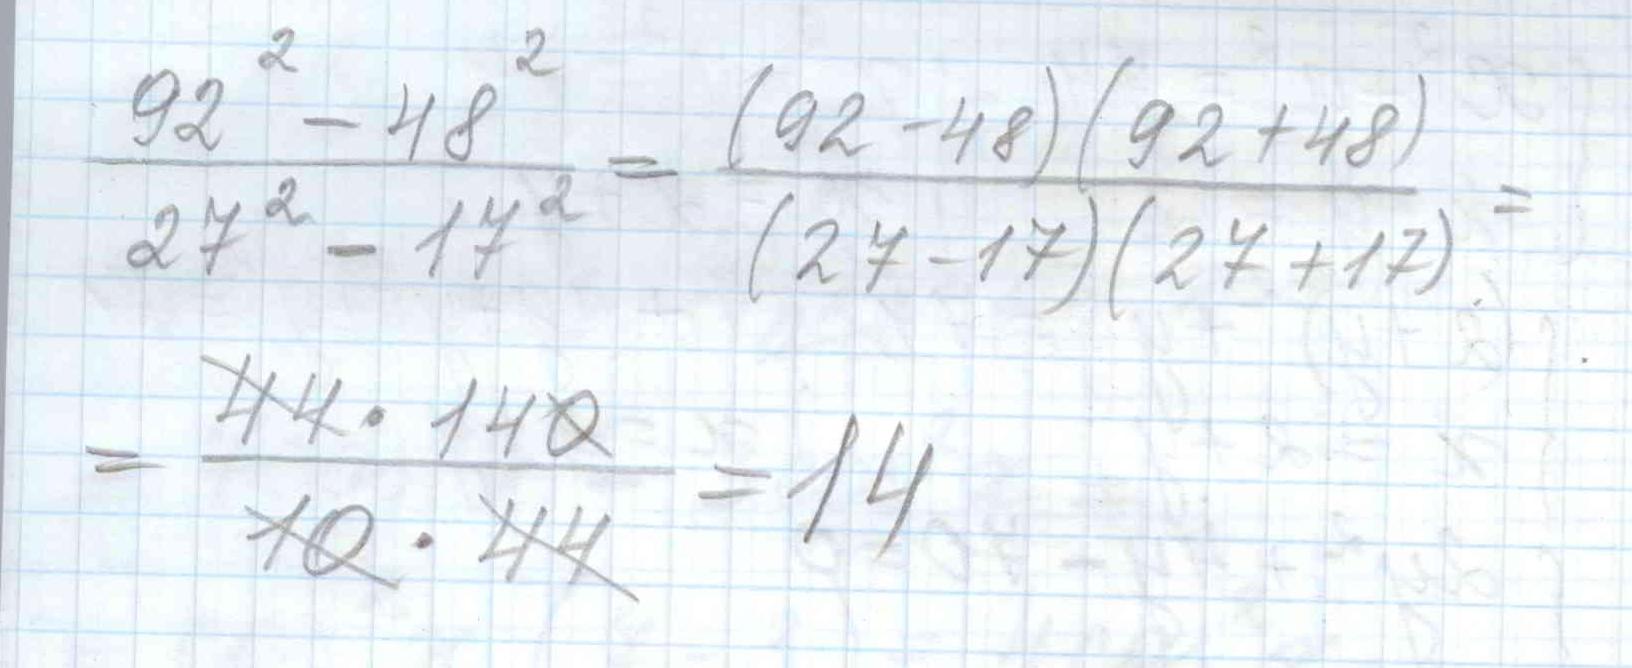 92² - 48² / 27² - 17² = (92 - 48)(92 + 48) / (27 - 17)(27 + 17) =
= 44 · 140 / 10 · 44 = 14